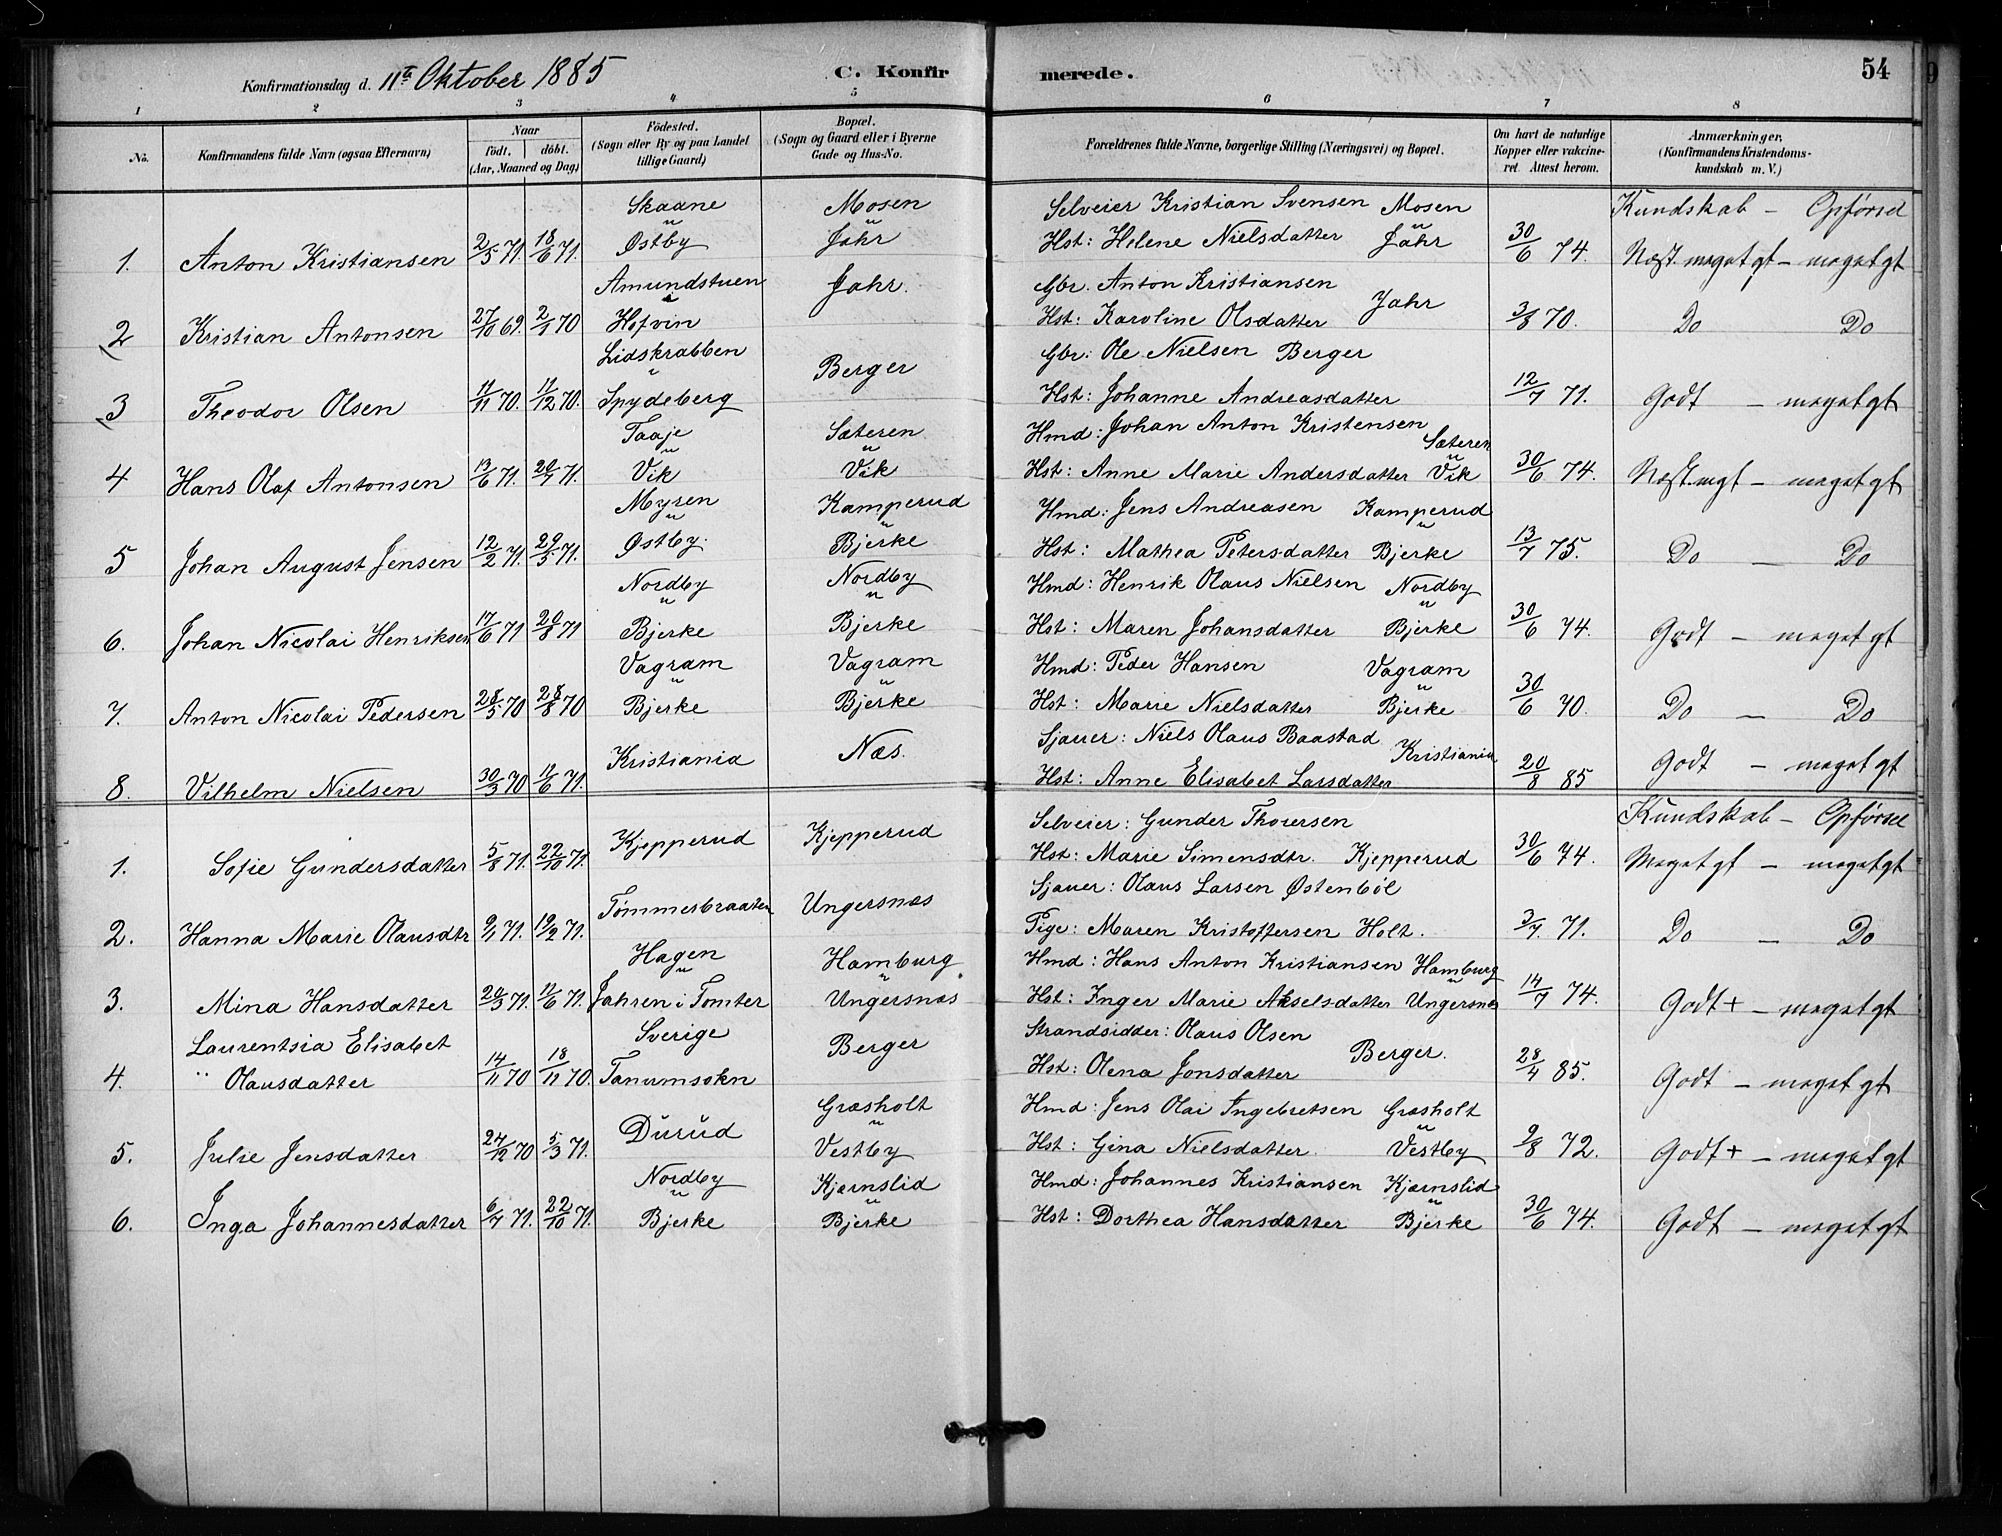 Konfirmationsdag d. 11te Oktober 1885 C. Konfirmerede. 54
1 2 3 4 5 6 7 8
No. Konfirmandens fulde Navn (ogsaa Efternavn) Naar födt. döbt. (Aar, Maaned og Dag) Födested. (Sogn eller By og paa Landet tillige Gaard) Bopæl. (Sogn og Gaard eller i Byerne Gade og Hus-No. Forældrenes fulde Navne, borgerlige Stilling (Næringsvei) og Bopæl. Om havt de naturlige Kopper eller vakcineret Attest herom. Anmærkninger, (Konfirmandens Kristendomskundskab m. V.)
Skaane Mosen Selveier Kristian Svensen Mosen Kundskab - Opförsel
1. Anton Kristiansen 2/5 71. 18/6 71. Østby Jahr Hst: Helene Nielsdatter Jahr 30/6 74. Næst megetgt - megetgt
Amundstuen Jahr. Gbr. Anton Kristiansen
2 Kristian Antonsen 27/10 69. 2/1 70 Hofvin Hst: Karoline Olsdatter Jahr 3/8 70. Do Do
Lidskrabben Berger Gbr: Ole Nielsen Berger
3 Theodor Olsen 11/11 70. 11/12 70. Spydeberg Hst: Johanne Andreasdatter 12/7 71. Godt - megetgt
Taaje Sæteren Hmd: Johan Anton Kristensen Sæteren
4 Hans Olaf Antonsen 13/6 71. 20/7 71. Vik Vik Hst: Anne Marie Andersdatter Vik 30/6 74. Næst mgt - megetgt
Myren Kamperud Hmd: Jens Andreasen Kamperud
5 Johan August Jensen 12/2 71. 29/5 71. Østby. Bjerke Hst: Mathea Petersdatter Bjerke 13/7 75. Do - Do
Nordby Nordby Hmd: Henrik Olaus Nielsen Nordby
6. Johan Nicolai Henriksen 17/6 71 20/8 71 Bjerke Bjerke Hst: Maren Johansdatter Bjerke 30/6 74. Godt - megetgt
Vagram Vagram Hmd: Peder Hansen Vagram
7. Anton Nicolai Pedersen 28/5 70 28/8 70 Bjerke Bjerke Hst: Marie Nielsdatter Bjerke 30/6 70. Do - Do
Kristiania Næs. Sjauer: Niels Olaus Baastad Kristiania
8. Vilhelm Nielsen 30/3 70 11/6 71. Hst: Anne Elisabet Larsdatter 20/8 85 Godt - megetgt
Kjepperud Kjepperud Selveier: Gunder Thoresen Kundskab - Opförsel
1. Sofie Gundersdatter 5/8 71. 22/10 71. Hst: Marie Simensdtr. Kjepperud 30/6 74. Megetgt - megetgt
Tømmerbraaten Ungersnæs Sjauer: Olaus Larsen Østenböl
2. Hanna Marie Olausdtr 9/1 71. 19/2 71. Pige: Maren Kristoffersen Holt. 3/7. 71. Do - Do
Hagen Hamburg Hmd: Hans Anton Kristiansen Hamburg
3. Mina Hansdatter 20/3 71. 11/6 71. Jahren i Tomter Ungersnæs Hst: Inger Marie Akselsdatter Ungersnæs 14/7 74. Godt+ - megetgt
Laurentsia Elisabet Sverige Berger Strandsidder: Olaus Olsen
4. " Olausdatter 14/11 70 18/11 70. Tanumsokn Hst: Olena Jonsdatter Berger. 28/4 85. Godt - megetgt
Durud Græsholt Hmd: Jens Olai Ingebretsen Græsholt
5. Julie Jensdatter 27/12 70 5/3 71. Vestby Hst: Gina Nielsdatter. Vestby 9/8 72. Godt + - megetgt
Nordby Kjærnslid Hmd: Johannes Kristiansen Kjærnslid
6. Inga Johannesdatter 6/7 71. 22/10 71. Bjerke Bjerke Hst: Dorthea Hansdatter Bjerke 30/6 74. Godt - megetgt